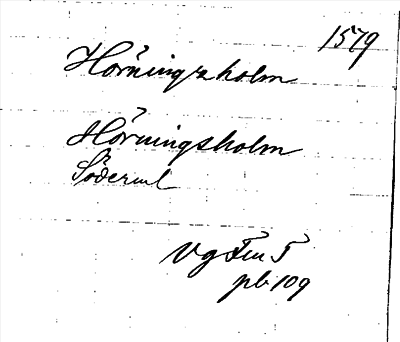 1579
Hörningzholm
Hörningsholm
Söderml
Vg Fm 5
pb 109